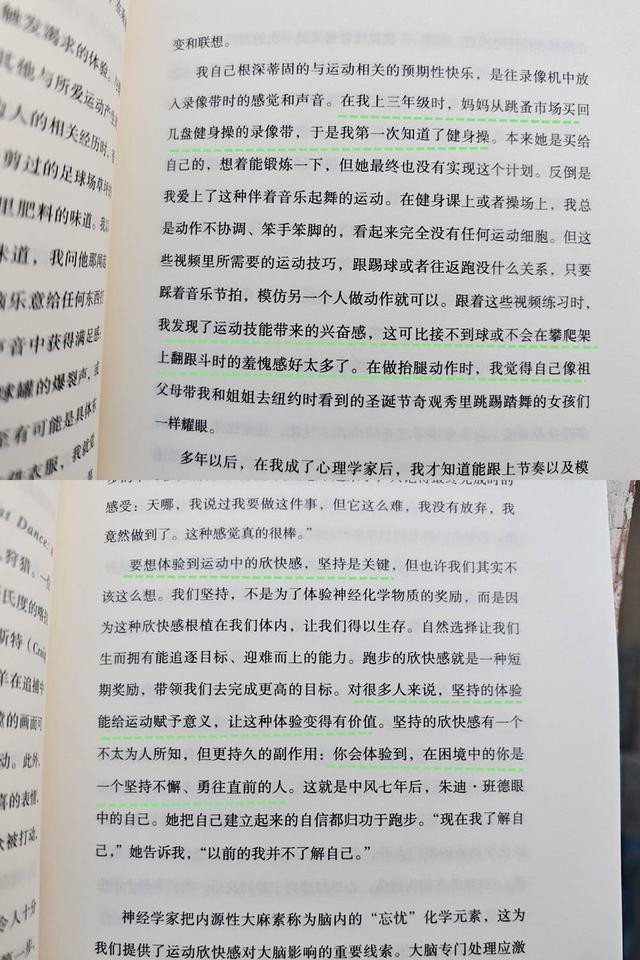 触发渴求的体验。
其他与所爱运动产生
人的相关经历时,
剪过的足球场草坪
里肥料的味道。
味道,我问他那闻起
脑乐意给任何东西打
声音中获得满足感
球罐的爆裂声,或
至有可能是具体东
件衣服,我就觉
变和联想。
我自己根深蒂固的与运动相关的预期性快乐,是往录像机中放
入录像带时的感觉和声音。在我上三年级时,妈妈从跳蚤市场买回
几盘健身操的录像带,于是我第一次知道了健身操。本来她是买给
自己的,想着能锻炼一下,但她最终也没有实现这个计划。反倒是
我爱上了这种伴着音乐起舞的运动。在健身课上或者操场上,我总
是动作不协调、笨手笨脚的,看起来完全没有任何运动细胞。但这
些视频里所需要的运动技巧,跟踢球或者往返跑没什么关系,只要
踩着音乐节拍,模仿另一个人做动作就可以。跟着这些视频练习时,
我发现了运动技能带来的兴奋感,这可比接不到球或不会在攀爬架
上翻跟斗时的羞愧感好太多了。在做抬腿动作时,我觉得自己像祖
父母带我和姐姐去纽约时看到的圣诞节奇观秀里跳踢踏舞的女孩们
一样耀眼。
多年以后,在我成了心理学家后,我才知道能跟上节奏以及模
Dance:
人狩猎。
氏度的喀
斯特(Craig
羊在追捕中
的画面可
动。此外,
喜的表情,
众被打动,
令人十分
第一步,
感受:天哪,我说过我要做这件事,但它这么难,我没有放弃,我
竟然做到了。这种感觉真的很棒。”
要想体验到运动中的欣快感,坚持是关键,但也许我们其实不
该这么想。我们坚持,不是为了体验神经化学物质的奖励,而是因
为这种欣快感根植在我们体内,让我们得以生存。自然选择让我们
生而拥有能追逐目标、迎难而上的能力。跑步的欣快感就是一种短
期奖励,带领我们去完成更高的目标。对很多人来说,坚持的体验
能给运动赋予意义,让这种体验变得有价值。坚持的欣快感有一个
不太为人所知,但更持久的副作用:你会体验到,在困境中的你是
一个坚持不懈、勇往直前的人。这就是中风七年后,朱迪·班德眼
中的自己。她把自己建立起来的自信都归功于跑步。“现在我了解自
己,”她告诉我,“以前的我并不了解自己。”
神经学家把内源性大麻素称为脑内的“忘忧”化学元素,这为
我们提供了运动欣快感对大脑影响的重要线索。大脑专门处理应激